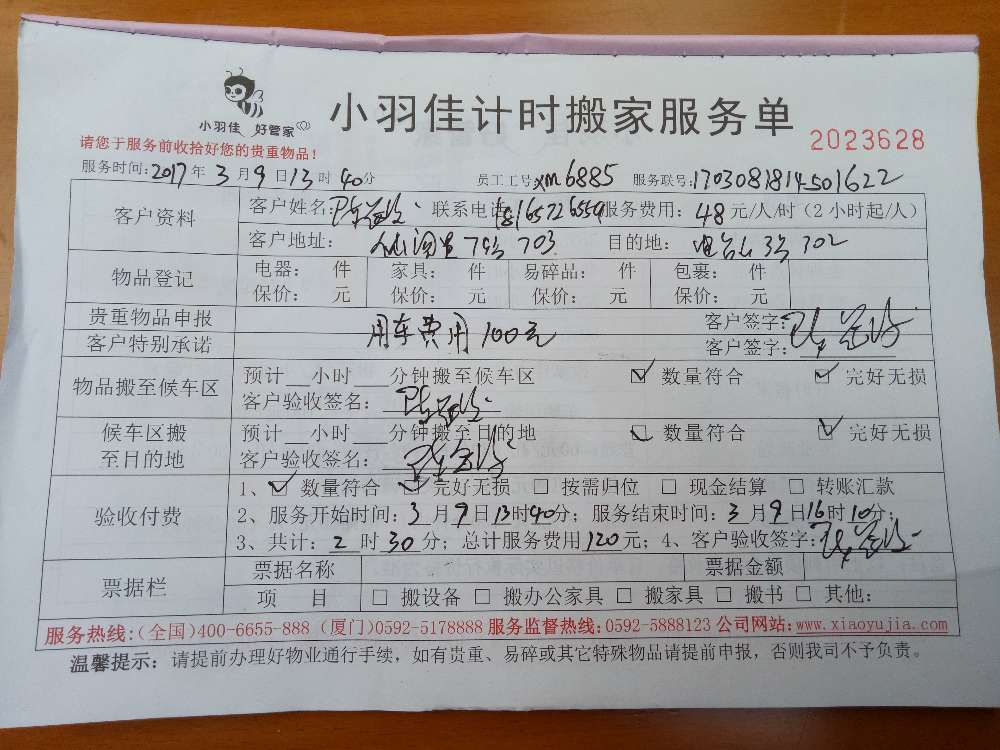 小羽佳 好管家
小羽佳计时搬家服务单
2023628
请您于服务前收拾好您的贵重物品！
服务时间：2017年3月9日13时40分 员工工号：xm6885 服务联号：1703081814501622
客户资料 客户姓名：陈 联系电话：18165726559 服务费用：48元/人/时（2小时起/人）
客户地址： 703 目的地： 302
物品登记 电器： 件 家具： 件 易碎品： 件 包裹： 件
保价： 元 保价： 元 保价： 元 保价： 元
贵重物品申报 客户签字：
用车费用100元
客户特别承诺 客户签字：
物品搬至候车区 预计__小时___分钟搬至候车区 ☑ 数量符合 ☑ 完好无损
客户验收签名：
候车区搬至目的地 预计__小时___分钟搬至目的地 ☑ 数量符合 ☑ 完好无损
客户验收签名：
验收付费 1、☑ 数量符合 ☑ 完好无损 □ 按需归位 □ 现金结算 □ 转账汇款
2、服务开始时间：3月9日13时40分；服务结束时间：3月9日16时10分；
3、共计：2时30分；总计服务费用120元；4、客户验收签字：
票据栏 票据名称 票据金额
项 目 □ 搬设备 □ 搬办公家具 □ 搬家具 □ 搬书 □ 其他：
服务热线：（全国）400-6655-888（厦门）0592-5178888 服务监督热线：0592-5888123 公司网站：www.xiaoyujia.com
温馨提示：请提前办理好物业通行手续，如有贵重、易碎或其它特殊物品请提前申报，否则我司不予负责。